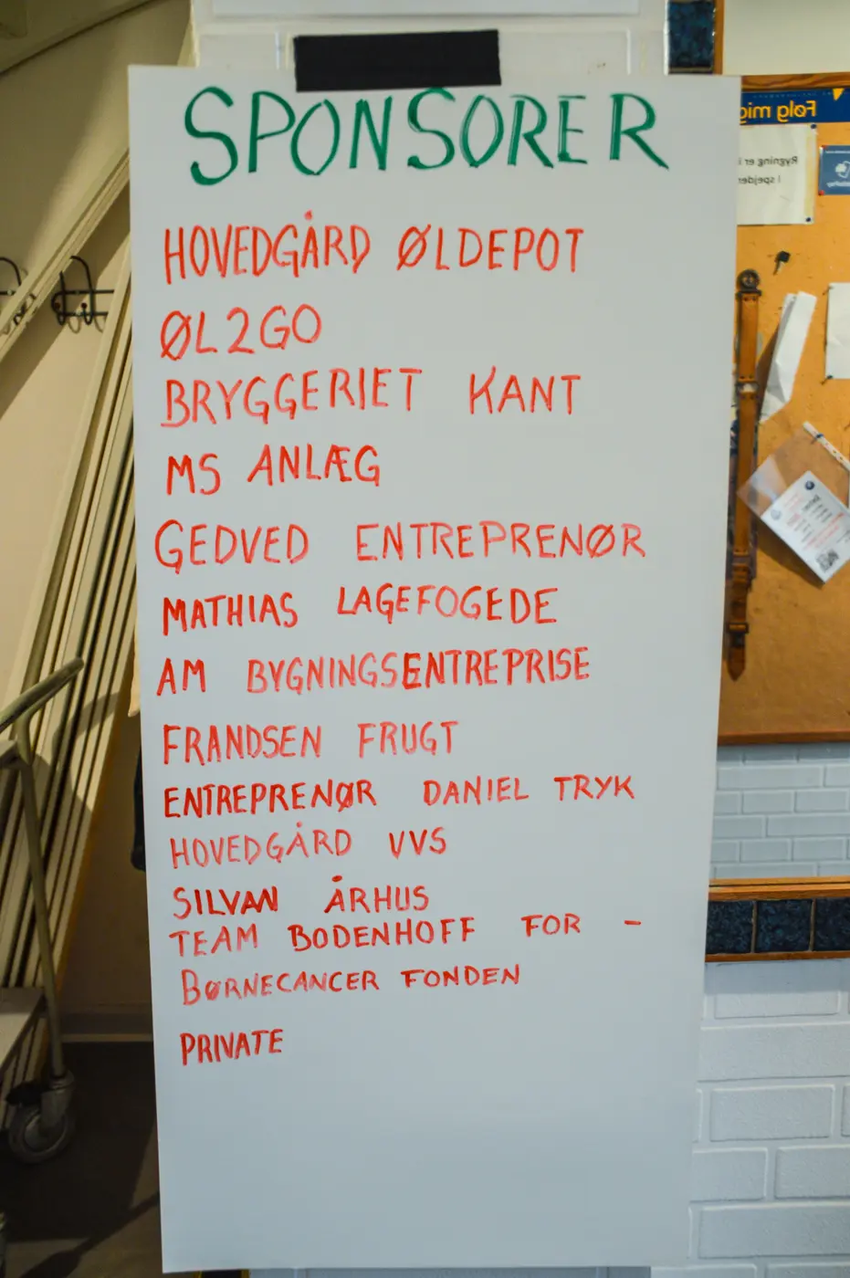 SPONSORER
HOVEDGÅRD ØLDEPOT
ØL2GO
BRYGGERIET KANT
MS ANLÆG
GEDVED ENTREPRENØR
MATHIAS LAGEFOGEDE
AM BYGNINGSENTREPRISE
FRANDSEN FRUGT
ENTREPRENØR DANIEL TRYK
HOVEDGÅRD VVS
SILVAN ÅRHUS
TEAM BODENHOFF FOR -
BØRNECANCER FONDEN
PRIVATE
Følg mig
Rygning er i
i spejder